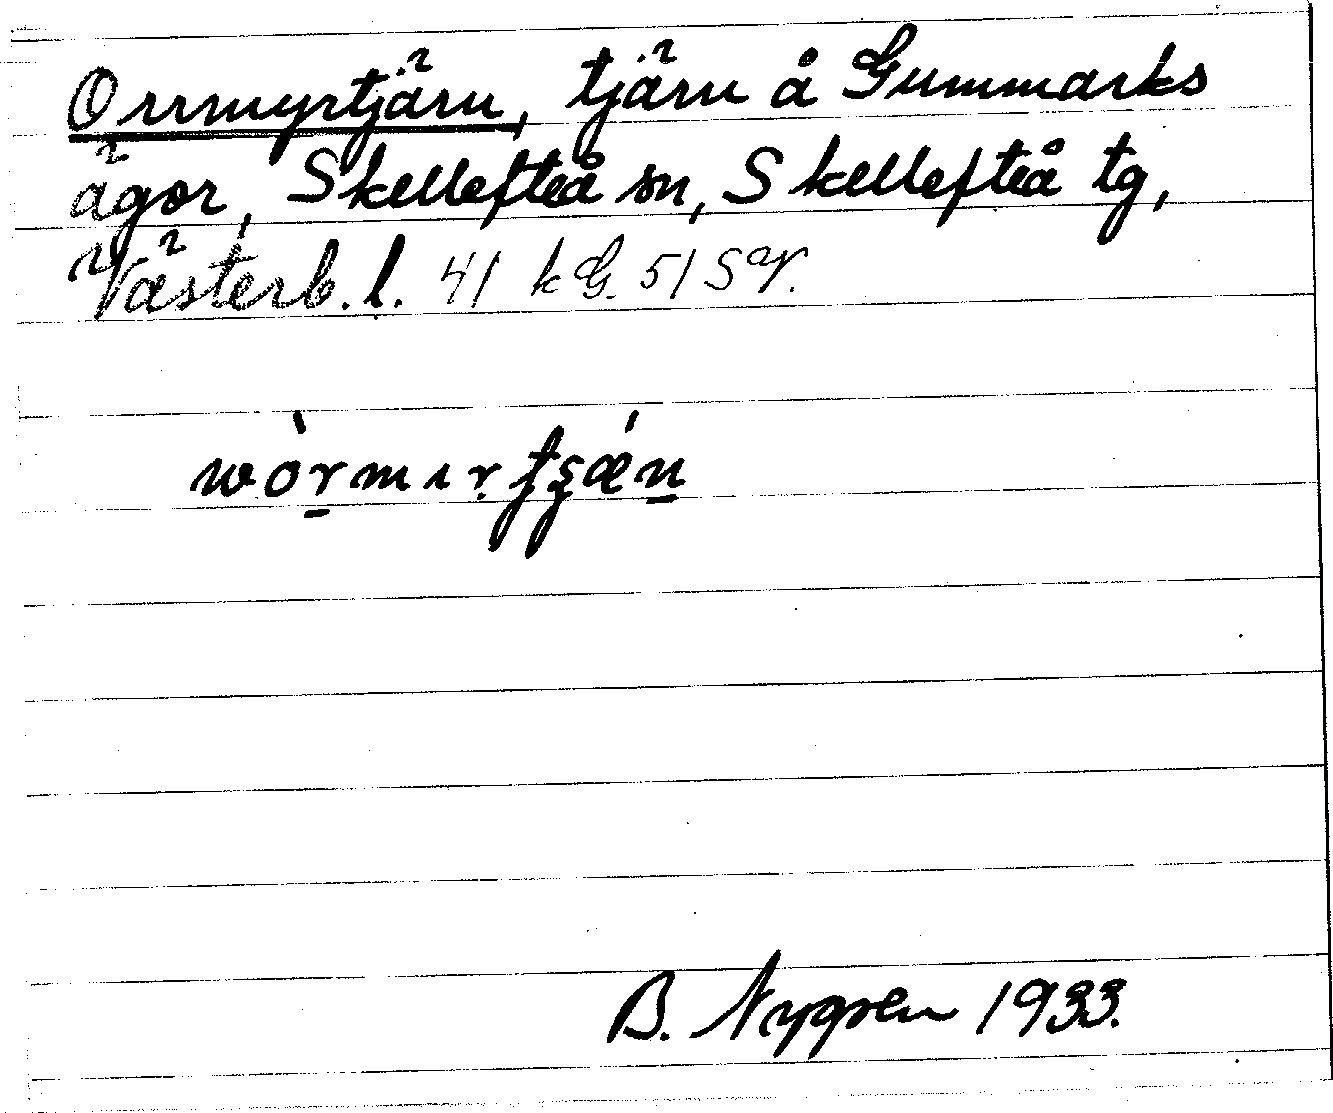 Orrmyrtjärn, tjärn å Gummarks
ägor, Skellefteå sn, Skellefteå tg,
Västerb. l. 41 kG. 51 SV.
wòrmırtʂǽn
B. Nygren 1933.